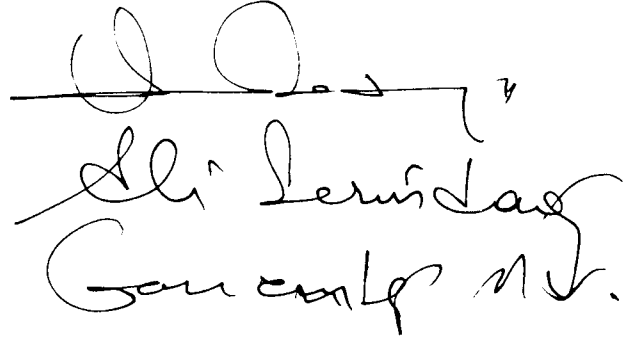 Ali Serindağ
Gaziantep M.V.